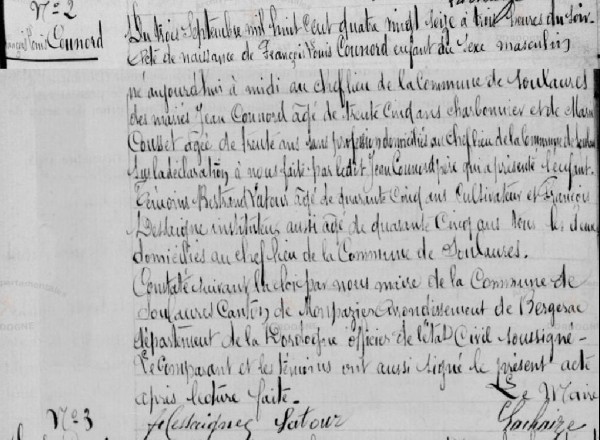 N° 2
François Louis Counord
Du trois Septembre mil huit cent quatre vingt seize à trois heures du soir
Acte de naissance de François Louis Counord enfant du sexe masculin
né aujourd'hui à midi au chef lieu de la Commune de Soulaures
des mariés Jean Counord âgé de trente cinq ans charbonnier et de Marie
Cousset âgée de trente ans sans profession domiciliés au chef lieu de la Commune de
Sur la déclaration à nous faite par ledit Jean Counord père qui a présenté l'enfant.
Témoins Bertrand Latour âgé de quarante cinq ans cultivateur et François
Dessaigne instituteur aussi âgé de quarante cinq ans tous les deux
domiciliés au chef lieu de la Commune de Soulaures.
Constaté suivant la loi par nous maire de la Commune de
Soulaures Canton de Monpazier arrondissement de Bergerac
département de la Dordogne officier de l'Etat Civil soussigné
Le Comparant et les témoins ont aussi signé le présent acte
après lecture faite.
Le Maire
N° 3
Latour